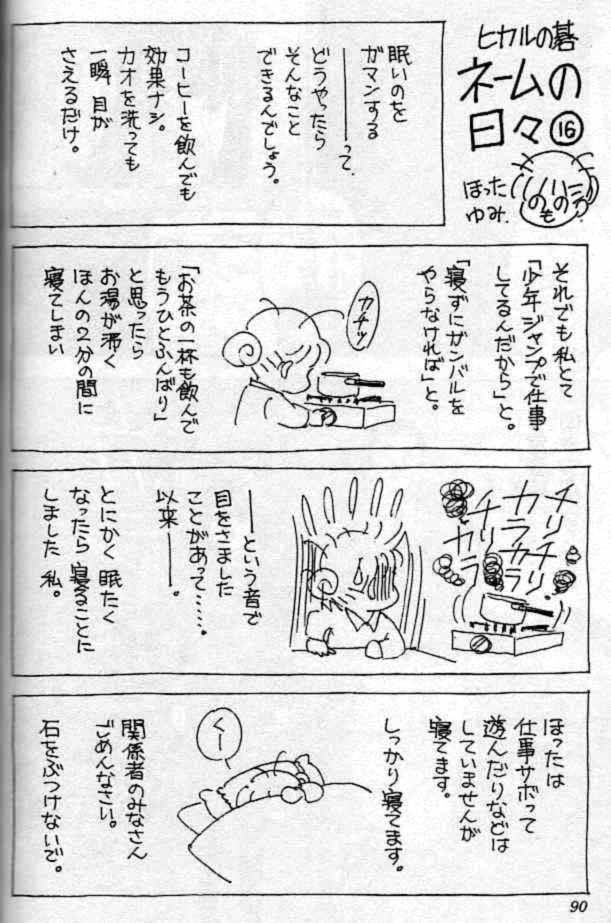 ヒカルの碁
ネームの
日々⑯
ほった
ゆみ
のもの
眠いのを
ガマンする
――――って、
どうやったら
そんなこと
できるんでしょう。
コーヒーを飲んでも
効果ナシ。
カオを洗っても
一瞬目が
さえるだけ。
それでも私とて
「少年ジャンプで仕事
してるんだから」と。
「寝ずにガンバルを
やらなければ」と。
カチッ
「お茶の一杯も飲んで
もうひとふんばり」
と思ったら
お湯が沸く
ほんの2分の間に
寝てしまい
チリチリ
カラカラ
チリ
カラ
――という音で
目をさました
ことがあって……。
以来――。
とにかく眠たく
なったら寝ることに
しました私。
ほったは
仕事サボって
遊んだりなどは
していませんが
寝てます。
しっかり寝てます。
くー
関係者のみなさん
ごめんなさい。
石をぶつけないで。
90